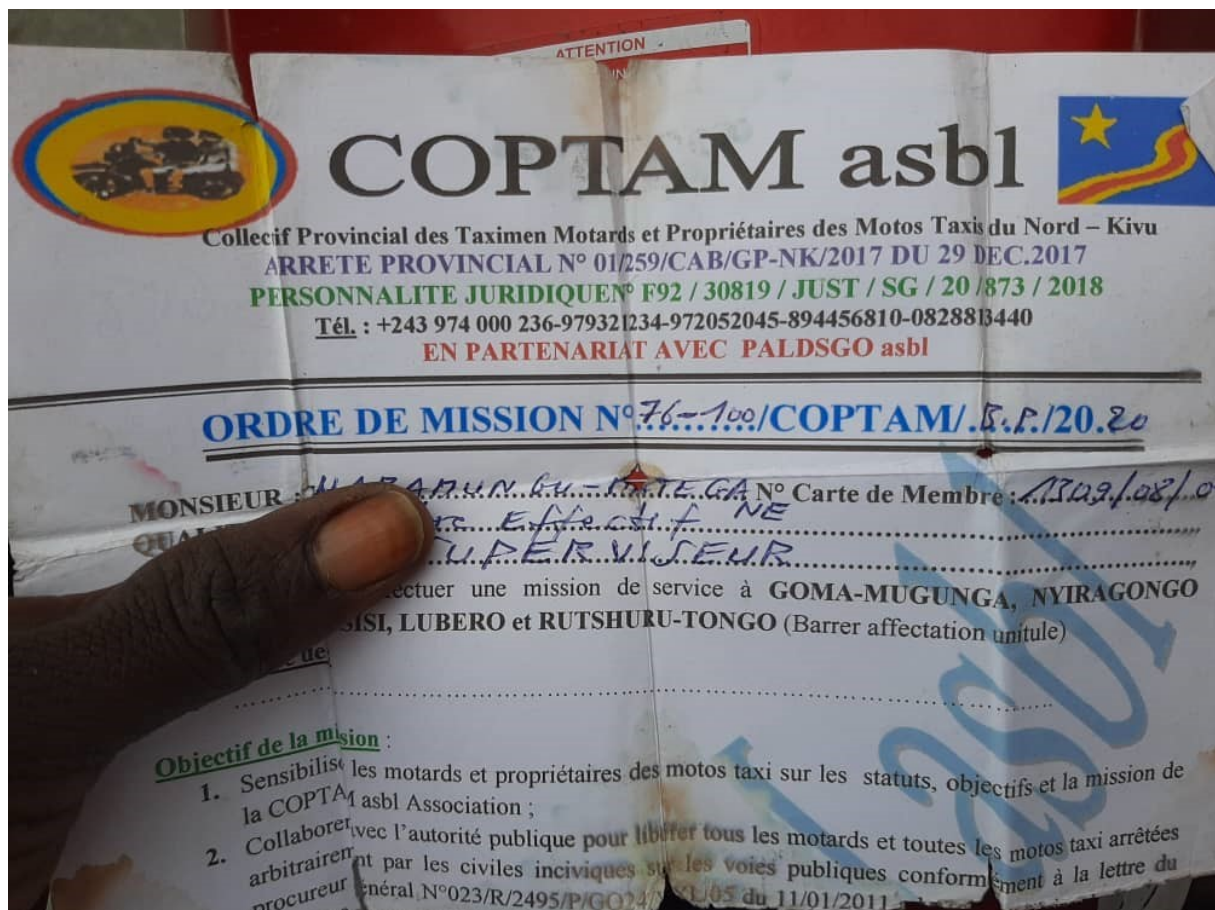 ATTENTION
COPTAM asbl
Collectif Provincial des Taximen Motards et Propriétaires des Motos Taxis du Nord – Kivu
ARRETE PROVINCIAL N° 01/259/CAB/GP-NK/2017 DU 29 DEC.2017
PERSONNALITE JURIDIQUEN° F92 / 30819 / JUST / SG / 20 /873 / 2018
Tél. : +243 974 000 236-979321234-972052045-894456810-0828813440
EN PARTENARIAT AVEC PALDSGO asbl
ORDRE DE MISSION N° 76-100/COPTAM/.B.P./20.20
MONSIEUR : N° Carte de Membre :
Effectif NE
SUPERVISEUR
une mission de service à GOMA-MUGUNGA, NYIRAGONGO
LUBERO et RUTSHURU-TONGO (Barrer affectation unitule)
Objectif de la mission :
1. les motards et propriétaires des motos taxi sur les statuts, objectifs et la mission de
la COPTAM asbl Association ;
2. Collaborer avec l'autorité publique pour libérer tous les motards et toutes les motos taxi arrêtées
arbitrairement par les civiles inciviques sur les voies publiques conformément à la lettre du
procureur général du 11/01/2011
asbl